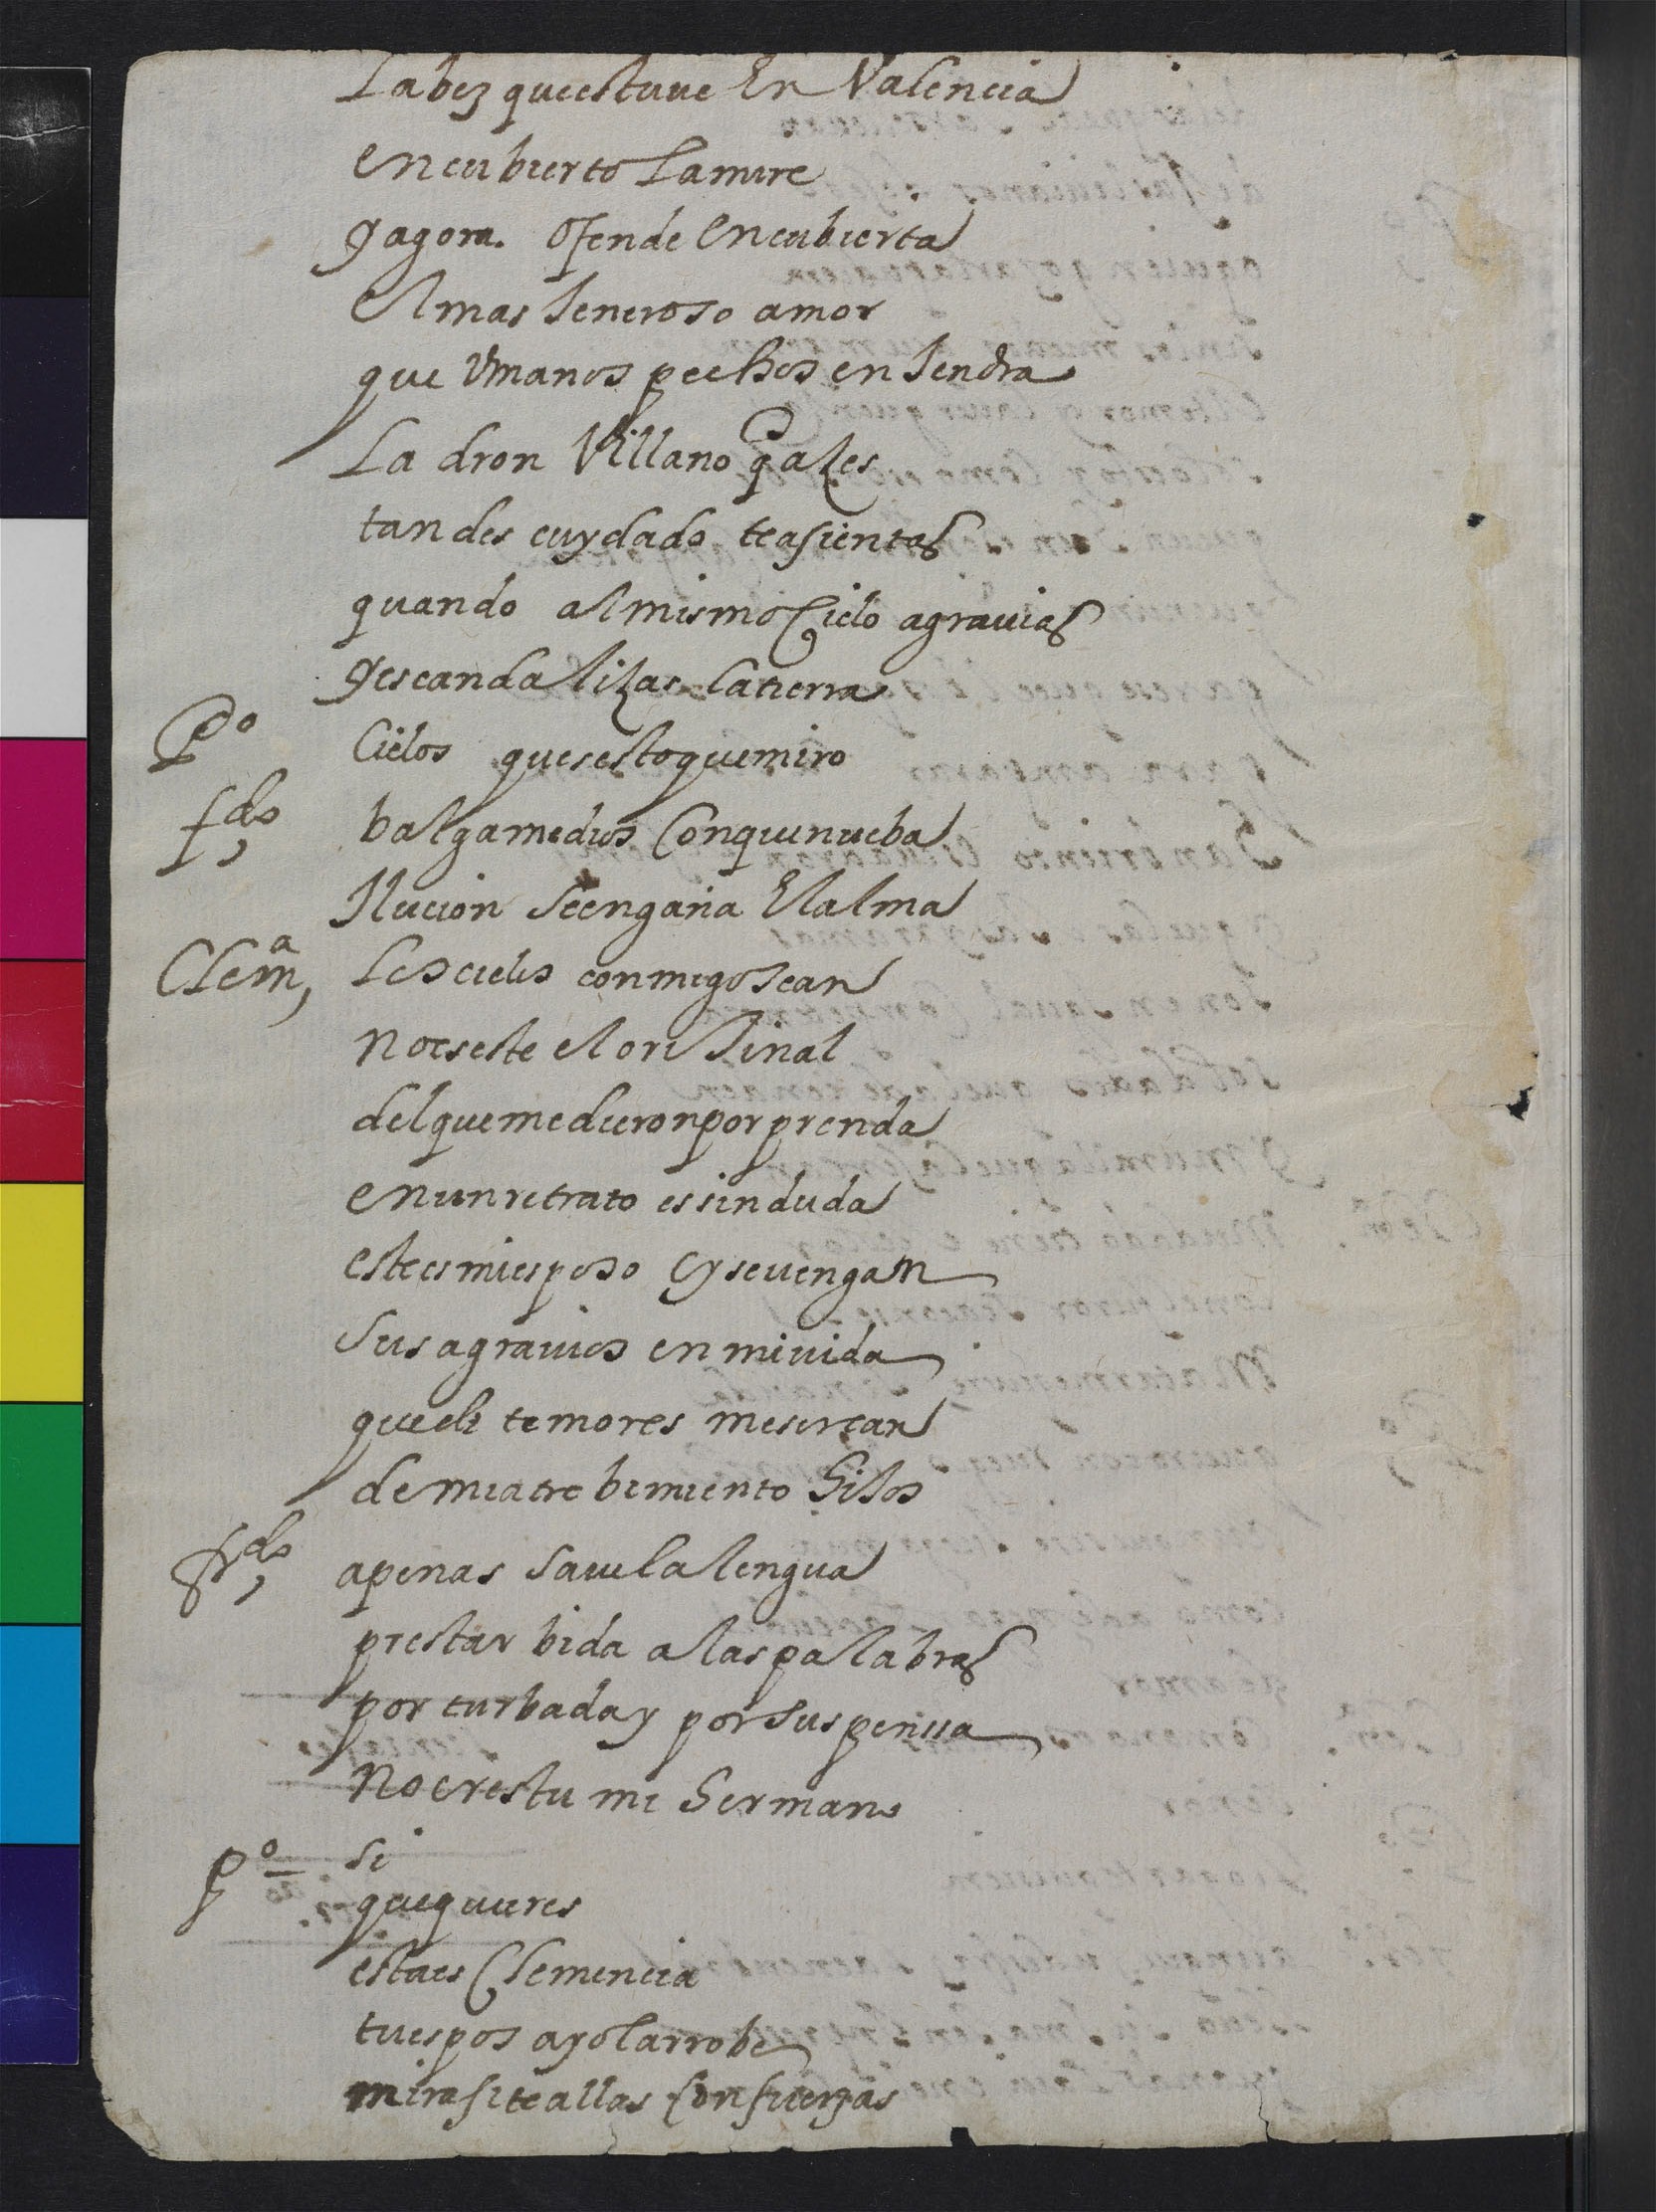 La bez que estuue En Valencia
encubierto La mire
y agora. ofende encubierta
el mas jeneroso amor
que Vmanos pechos enjendra
La dron Villano q̃ azes
tan descuydado te asientas
quando al mismo Cielo agrauias
y escandalizas la tierra
Pº Cielos ques esto que miro
fdo, balgame dios Con que nueba
Ylucion Se engaña El alma
Clemª, Los cielos conmigo sean
no es este el orijinal
del que me dieron por prenda
en un retrato es sin duda
este es mi esposo oy se vengan
Sus agrauios en mi vida
que de temores me sercan
de mi atrebimiento hijos
frdo, apenas saue la lengua
prestar bida a las palabras
por turbada y por suspensa
No eres tu mi hermano
Pº si
que quieres
esta es Clemencia
tu esposa yo la rrobe
mira si te allas con fuerzas